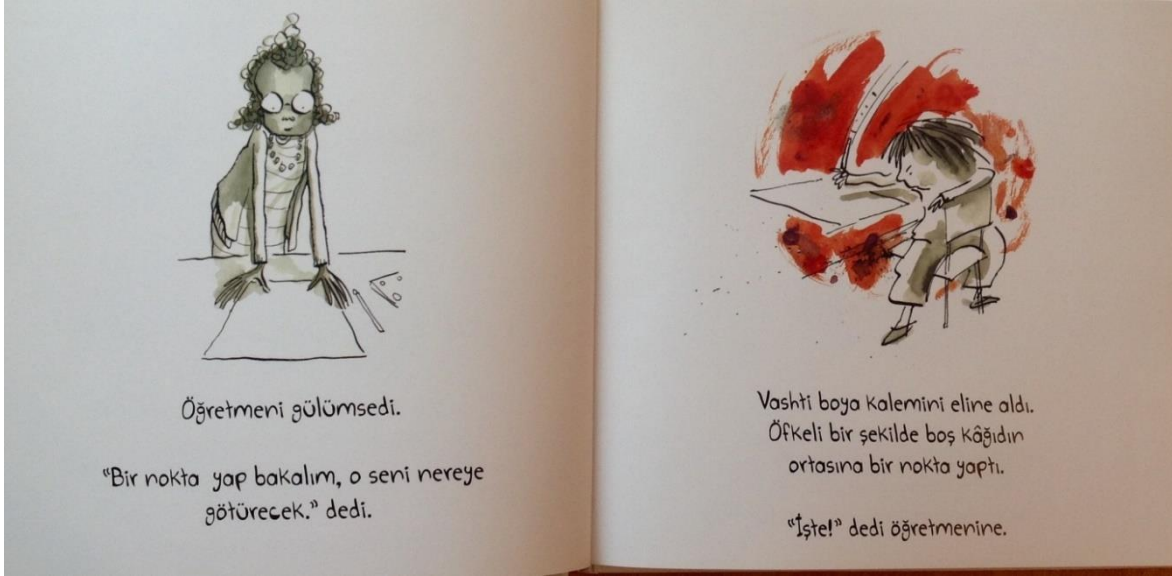 Öğretmeni gülümsedi.
“Bir nokta yap bakalım, o seni nereye
götürecek.” dedi.
Vashti boya kalemini eline aldı.
Öfkeli bir şekilde boş kâğıdın
ortasına bir nokta yaptı.
“İşte!” dedi öğretmenine.